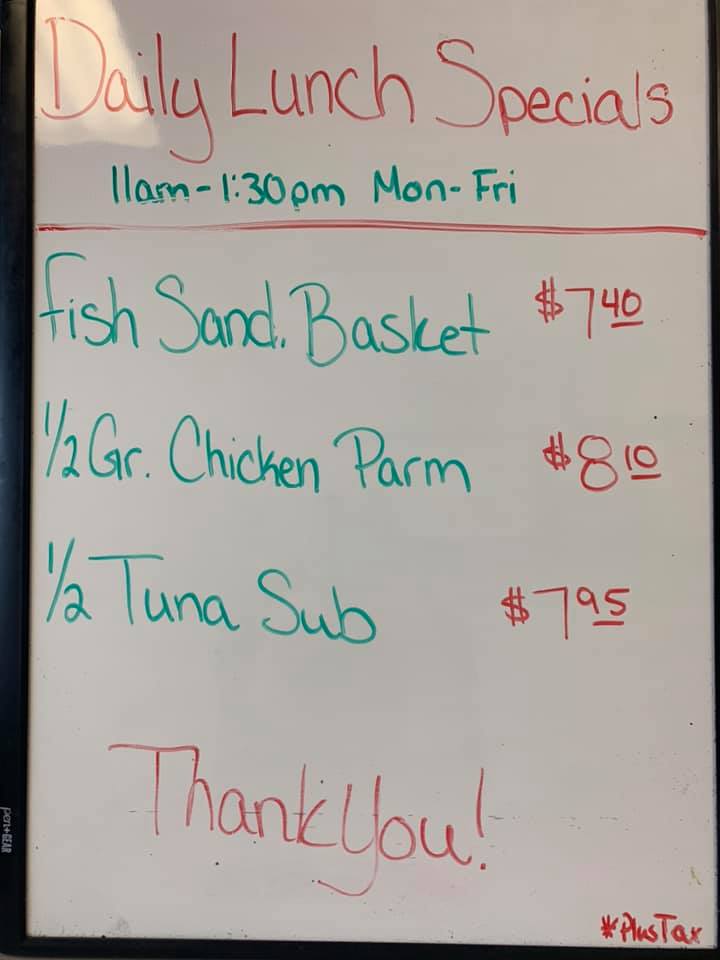 Daily Lunch Specials
11am-1:30pm Mon-Fri
Fish Sand. Basket $7 40
1/2 Gr. Chicken Parm $8 10
1/2 Tuna Sub $7 95
Thank You!
*Plus Tax
pen+GEAR